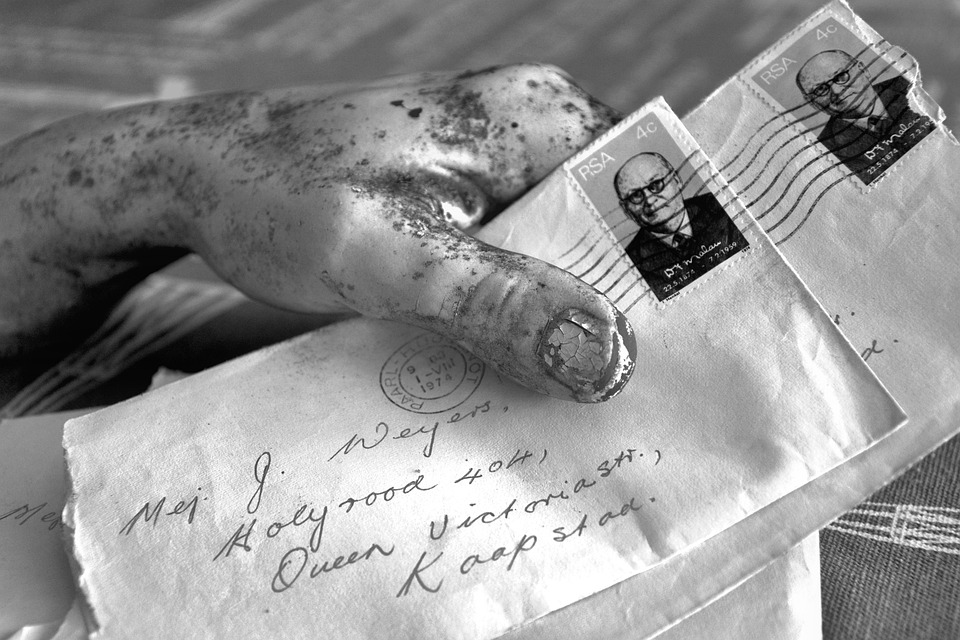 RSA 4c
DF Malan
22.5.1874 - 7.2.1959
RSA 4c
DF Malan
22.5.1874 - 7.2.
PAARL
1-VIII
1974
Mej. J. Weyers,
Holyrood 404,
Queen Victoriastr.,
Kaapstad.
s.
d.
Mej